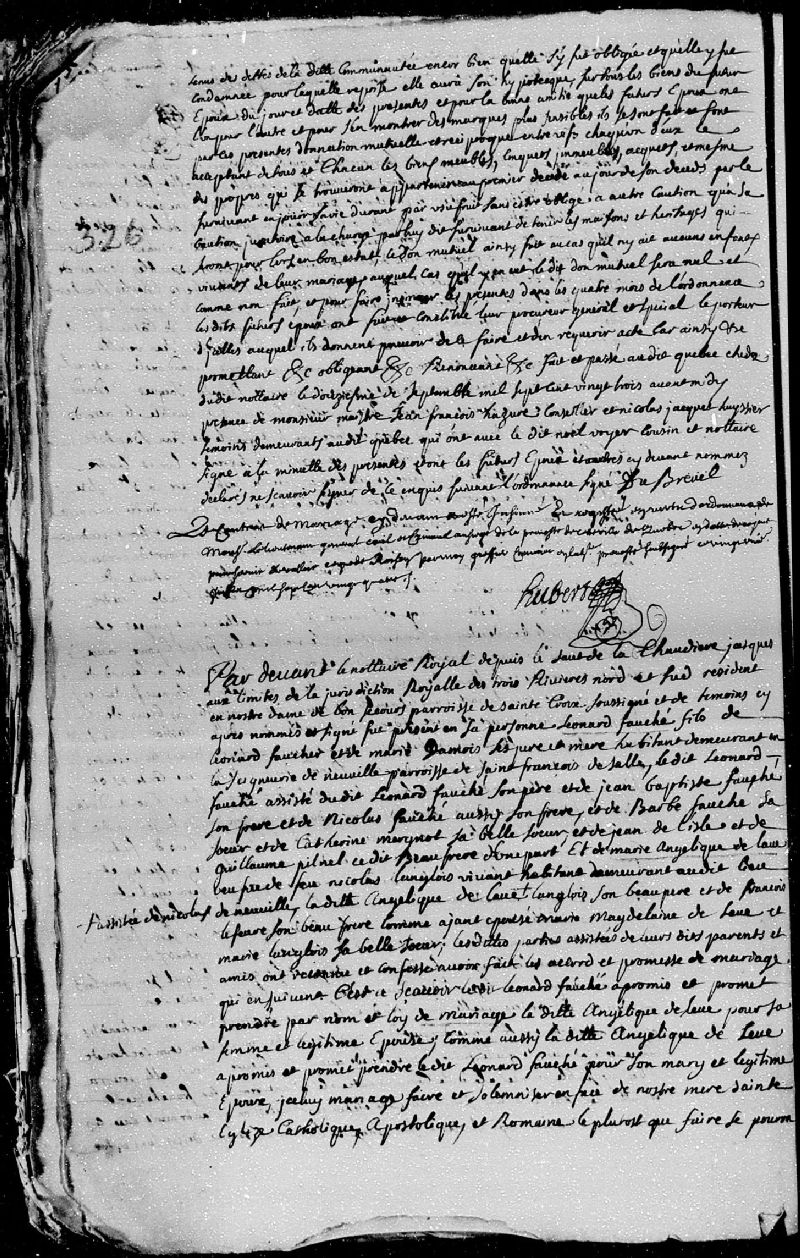 tenus des dettes de la ditte Communautée encor bien quelle s'y fut obligée et quelle y fut
Condamnée pour laquelle reprise elle aura son hypoteque sur tous les biens du futur
Epoux du jour et datte des presentes et pour la bonne amitié que les futurs Epoux ont
l'un pour l'autre et pour s'en montrer des marques plus sensibles ils se sont fait et font
par les presentes donnation mutuelle et reciproque entre vifs chaquun d'eux le
acceptant de tous et Chacun les biens meubles, Conquets immeubles, acquets et mesme
des propres qui se trouveront appartenir au premier decedé au jour de son deceds par le
survivant en jouir sa vie durant par usufruit sans estre obligé a autre Caution qua sa
Caution juratoire a la charge par luy dit survivant de tenir les maisons et heritages qui
seront pour lors en bon estat, le don mutuel ainsy fait au cas quil ny ait aucuns enfants
vivants de leur mariage, auquel Cas quil y en eut le dit don mutuel sera nul et
comme non fait, et pour faire insinuer les presentes dans les quatre mois de l'ordonnance
les dits futurs epoux ont fait et constitué leur procureur general et special le porteur
d'icelles auquel ils donnent pouvoir de le faire et d'en requerir acte Car ainsy &c
promettant &c obligeant &c Renonceant &c fait et passé audit quebec chez le
dudit nottaire le douziesme de Septembre mil sept cent vingt trois avant midy
presence de monsieur maistre Jean françois hazure Conseiller et nicolas jacques huyssier
temoins demeurants audit quebec qui ont avec le dit noel voyer cousin et nottaire
signé a la minutte des presentes et ont les futurs Epoux et autres cy devant nommez
declaré ne scavoir signer de ce enquis suivant l'ordonnance signé Du Breüil
Le Contrat de Mariage cy devant a esté Insinué Et registré en vertu d'ordonnance de
Monsr Lieutenant general civil et Criminel au siege de la prevosté de cette ville de Quebec
par moy greffier en laditte prevosté soussigné
mil sept cent vingt quatre
hubert
326
Par devant le nottaire Royal depuis le saut de la Chaudiere jusques
aux limites de la jurisdiction Royalle des trois Rivieres nord et sud resident
en nostre dame de bon secours parroisse de sainte Croix soussigné et de temoins cy
apres nommés et signé fut present en sa personne Leonard fauché fils de
Leonard faucher et de marie Damois ses pere et mere habitant demeurant en
la Seigneurie de neuville parroisse de saint francois de salle, le dit Leonard
fauché assisté du dit Leonard fauché son pere et de jean baptiste fauché
son frere et de Nicolas fauché aussy son frere, et de Barbe fauché sa
soeur et de Catherine marynot sa belle soeur, et de jean de l'isle et de
Guillaume pilnel ce dit Beau frere d'une part Et de marie Angelique de laue
veufve de feu nicolas langlois vivant habitant demeurant audit lieu
de neuville, la ditte Angelique de Laue langlois son beaupere et de francois
+ assistée de nicolas
lefeure son beau frere comme ajant epousé marie Magdelaine de Leue et
marie langlois sa belle soeur; lesdittes parties assistées de leurs dits parents et
amis ont reconnu et confessé avoir fait les accord et promesse de mariage
qui en suivent C'est a Scavoir ledit Leonard fauché a promis et promet
prendre par nom et loy de mariage la ditte Angelique de Leue pour sa
femme et legitime Epouse; Comme aussy la ditte Angelique de Leue
a promis et promet prendre le dit Leonard fauché pour son mary et legitime
Epoux, jceluy mariage faire et solemniser en face de nostre mere Sainte
Eglize Catholique, Apostolique, et Romaine le plutost que faire se pourra